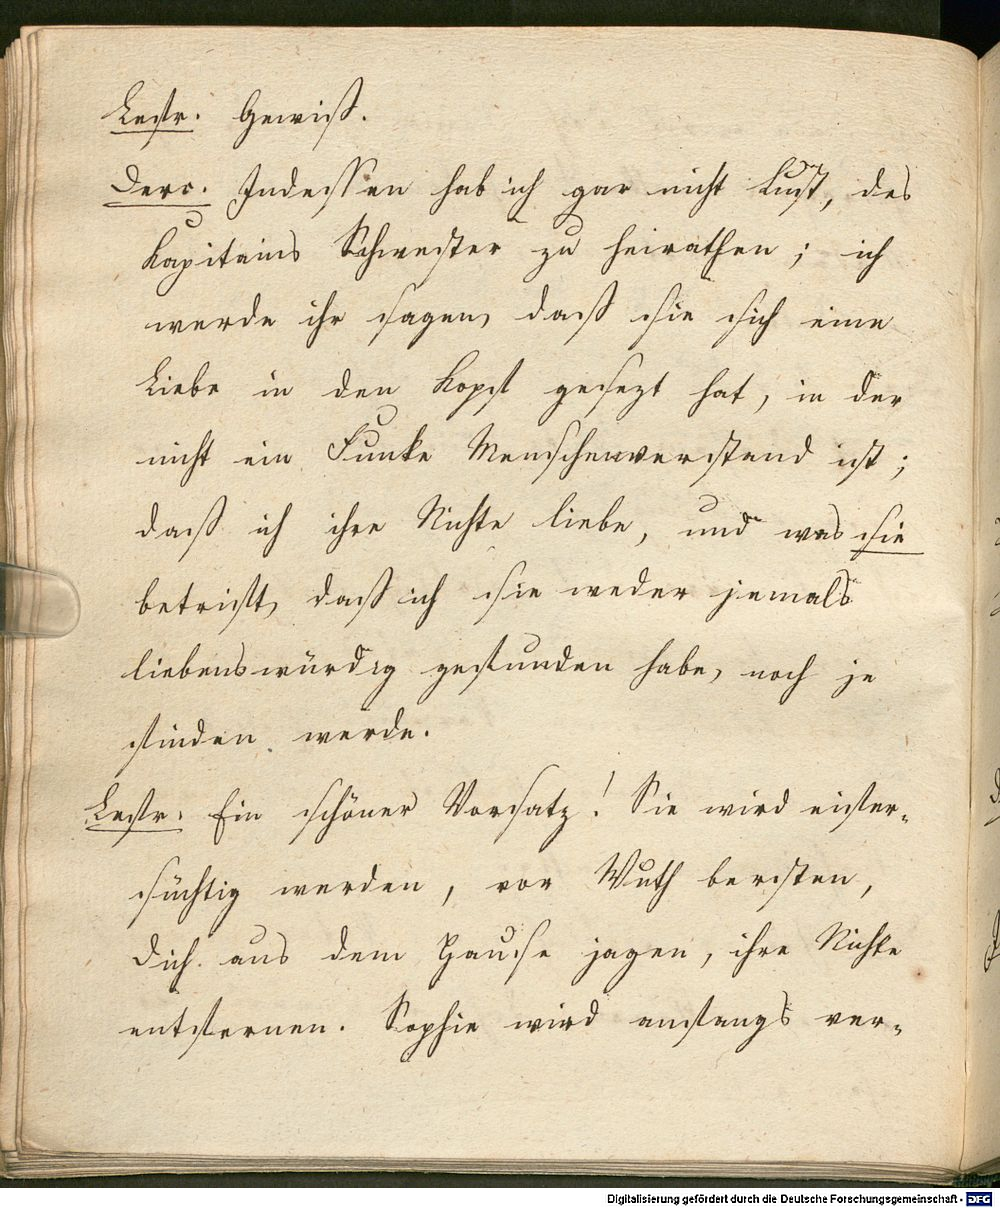 Lestr. Gewiß.
Derv. Indessen hab ich gar nicht Lust, des
Kapitains Schwester zu heirathen; ich
werde ihr sagen, daß sie sich eine
Liebe in den Kopf gesezt hat, in der
nicht ein Funke Menschenverstand ist;
daß ich ihre Nichte liebe, und was sie
betrift, daß ich sie weder jemals
liebenswürdig gefunden habe, noch je
finden werde.
Lestr. Ein schöner Vorsatz! Sie wird eifer-
süchtig werden, vor Wuth bersten,
Dich aus dem Hause jagen, ihre Nichte
entfernen. Sophie wird anfangs ver-
Digitalisierung gefördert durch die Deutsche Forschungsgemeinschaft - DFG